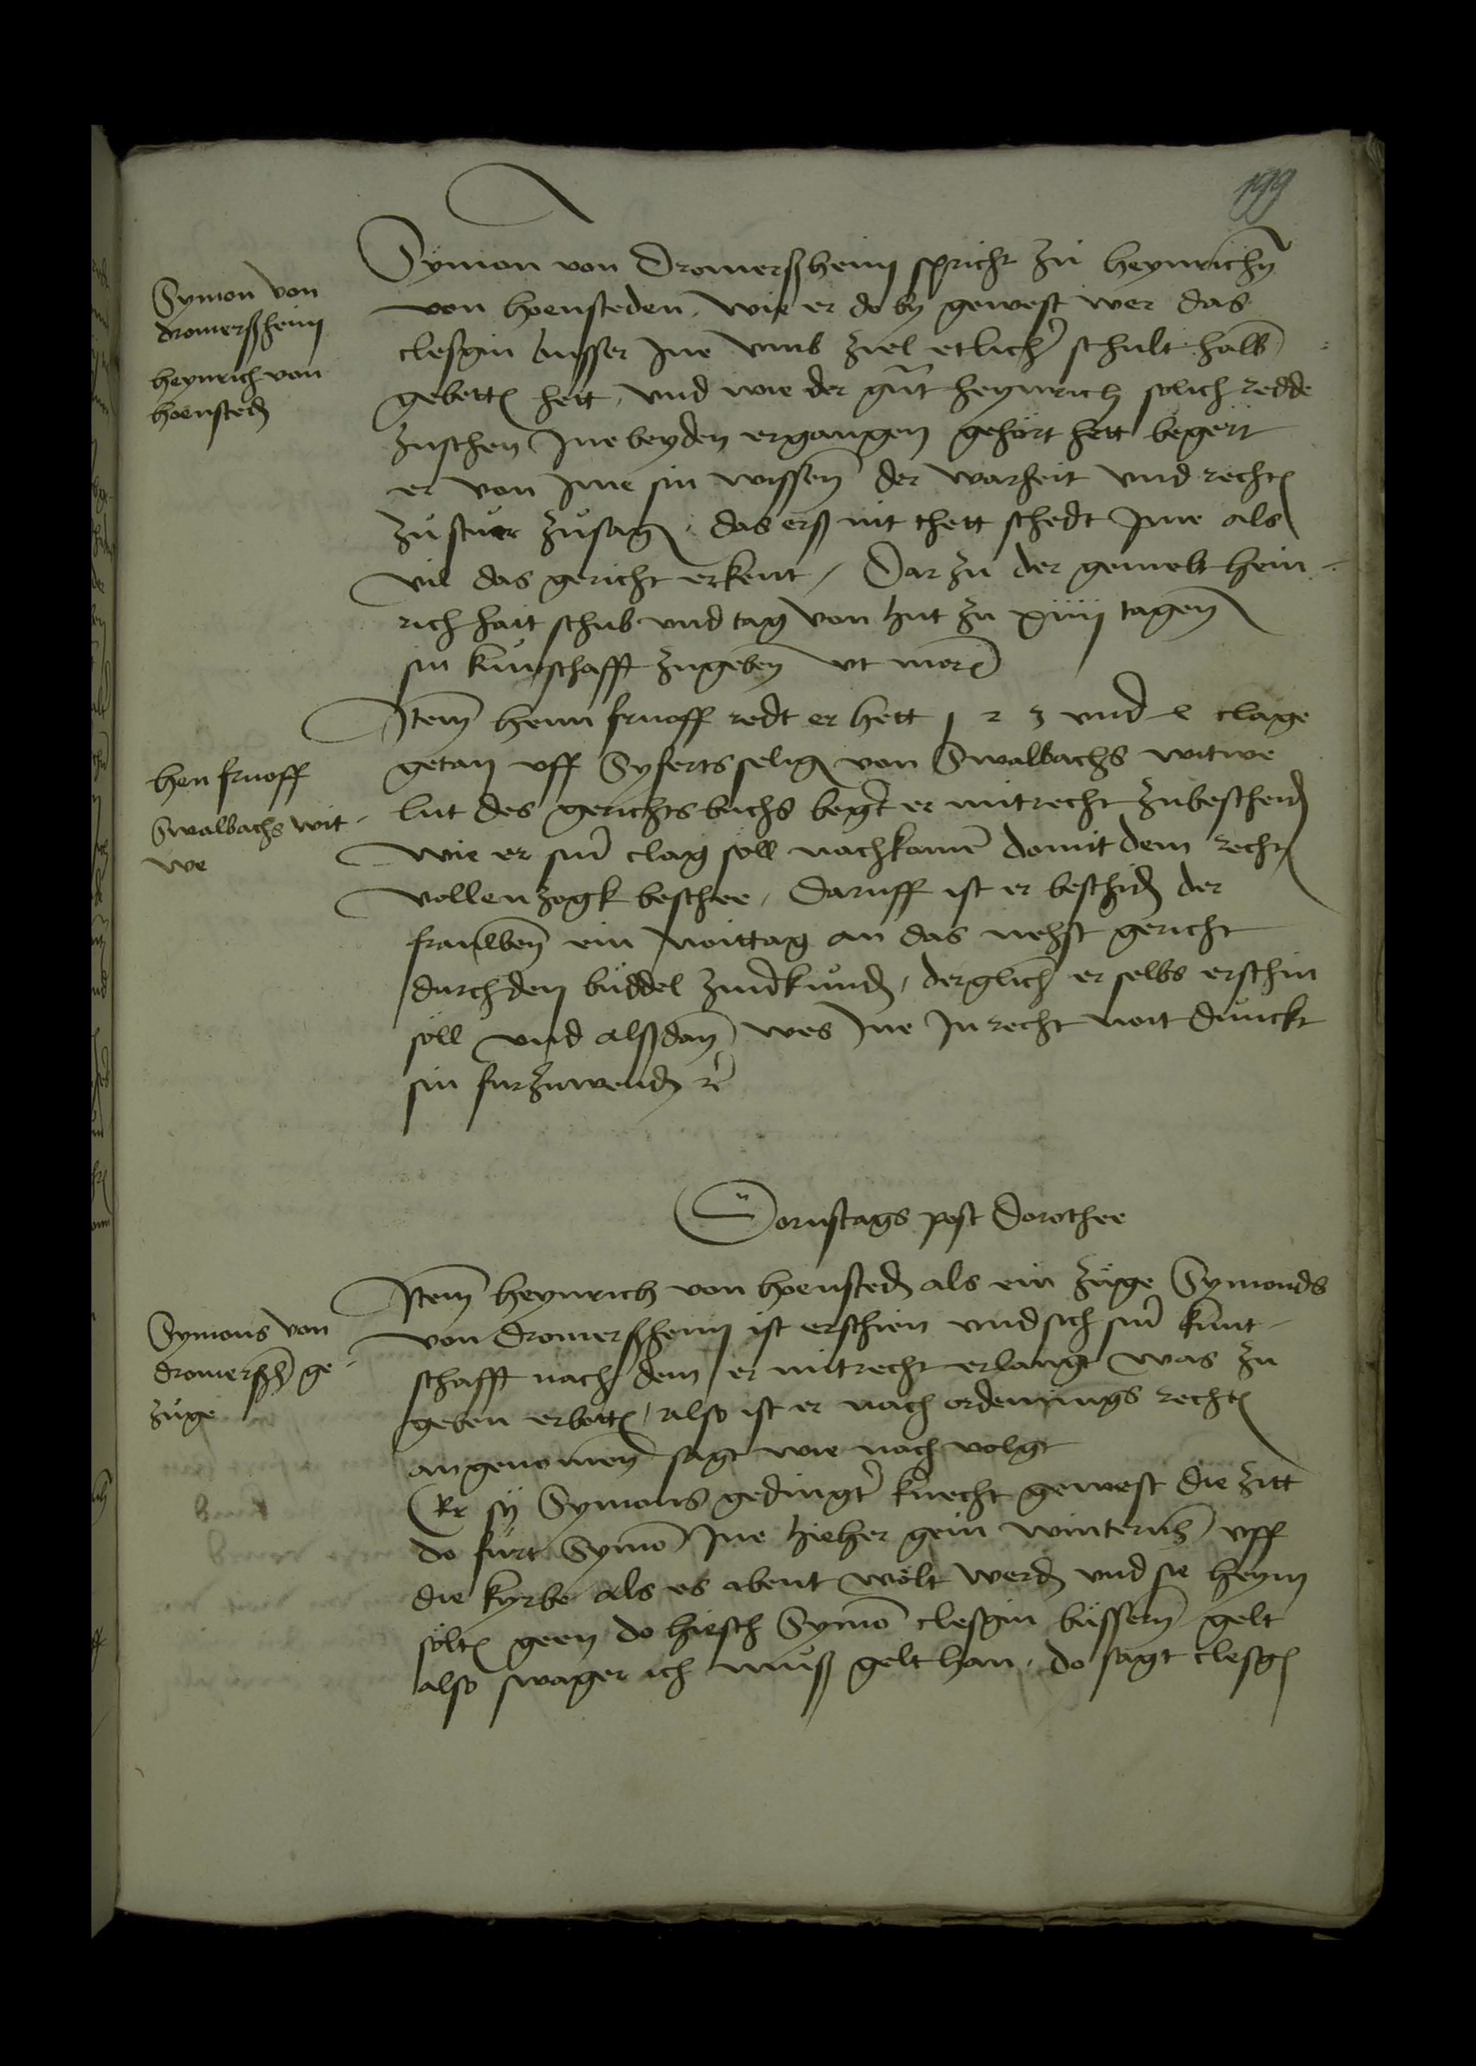 199
Symon von
dromerßheim
heynrich von
hoensteden
Symon von Dromerßheim spricht zu heynrichen
von hoensteden wie er do by gewest wer das
clesgin busser Ine vmb ziel etlicher schult halb
gebetten hett, vnd wie der gut heynrich solich redde
zuschen Ine beyden ergangen gehort hett begert
er von Ime sin wissen der warheit vnd rechten
zu stuer zusagen, das erß nit thett schedt Ime als
vil das gericht erkent / Dar zu der gemelt hein-
rich hait schub vnd tag von hut zu xiiii tagen
sin kuntschafft zugeben vt moris
hen fruoff
Swalbachs wit-
we
Item henn fruoff redt er hett 1 2 3 vnd clage
getan vff Syferts seligen von Swalbachs witwe
lut des gerichts buchs begert er mit recht zubescheiden
wie er siner clag soll nachkomen domit dem rechten
vollenzogk beschee, Daruff ist er bescheiden der
frauwen ein noittag an das nehst gericht
durch den buddel zuuerkunden, derglich er selbs erschin
soll vnd alßdan wes Ine In recht noit dunckt
sin furzuwenden etc
Dornstags post Dorothee
Symons von
dromerßheim ge-
zuge
Item heynrich von hoensteden als ein zuge Symonds
von Dromerßheim ist erschien vnd sich siner kunt-
schafft nach dem er mit recht erlangt was zu
geben erbotten, also ist er nach ordenungs rechten
angenomen sagt wie nach volgt
Er sy Symons gedingter knecht gewest die zitt
do furt Symon Ine hieher gein winternheim vff
die kyrbe als es abent wolt werden vnd sie heym
solten geen do hiesch Symon clesgin bussern gelt
also swager ich muß gelt han, do sagt clesgen